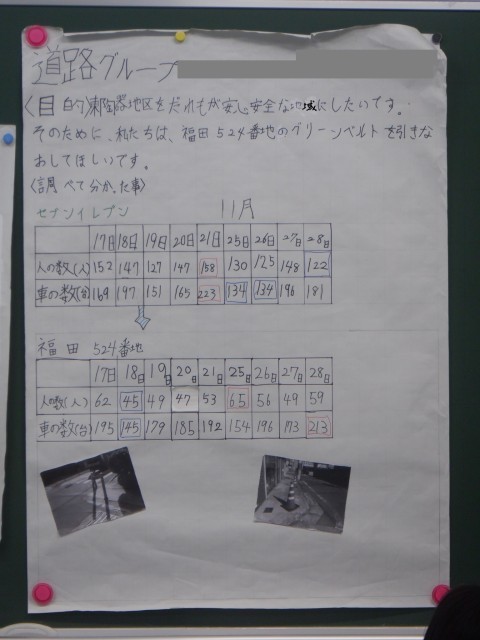 道路グループ
〈目的〉東陶器地区をだれもが安心安全な地域にしたいです。
そのために、私たちは、福田524番地のグリーンベルトを引きな
おしてほしいです。
〈調べて分かった事〉
セブンイレブン 11月
17日 18日 19日 20日 21日 25日 26日 27日 28日
人の数(人) 152 147 127 147 158 130 125 148 122
車の数(台) 169 197 151 165 223 134 134 196 181
福田 524番地
17日 18日 19日 20日 21日 25日 26日 27日 28日
人の数(人) 62 45 49 47 53 65 56 49 59
車の数(台) 195 145 179 185 192 154 196 173 213